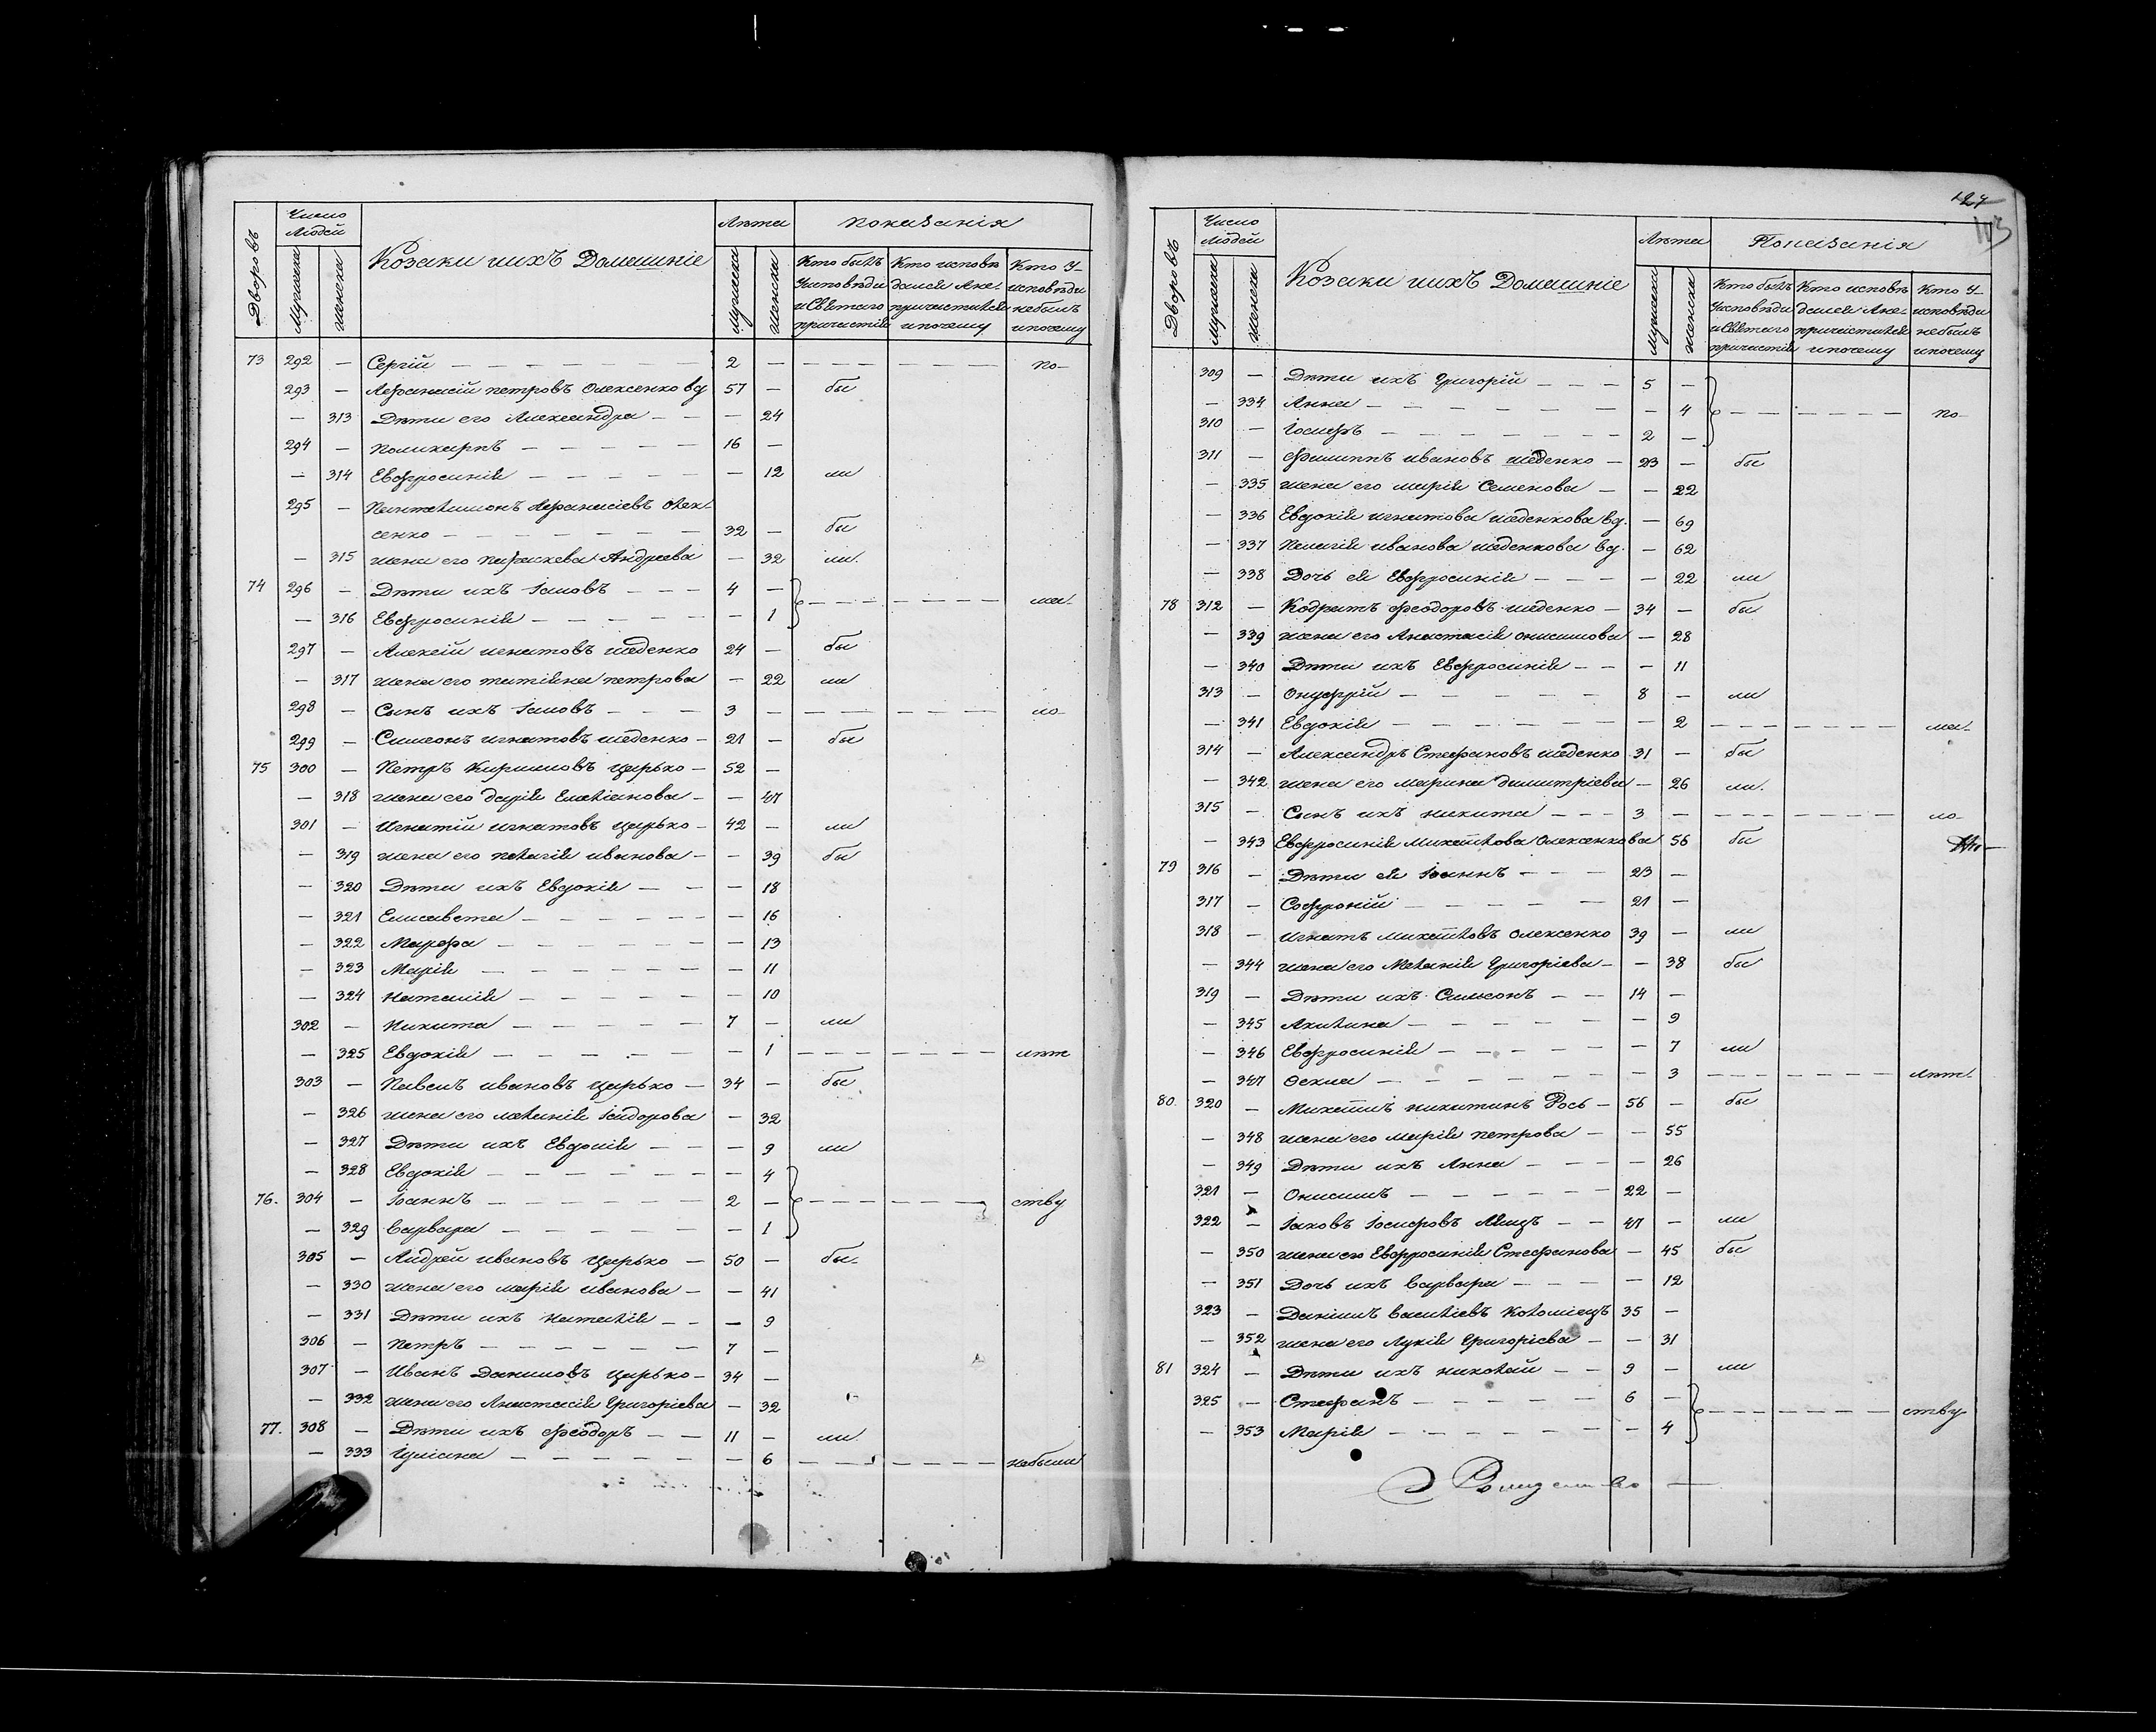 Дворовъ Число Людей Козаки ихъ Домашніе Лѣта Показанія
Мужеска Женска Мужеска Женска Кто былъ Кто исповѣ Кто У-
Уисповѣди дался Ане- исповѣди
иСвятаго причастился небылъ
причастія ипочему ипочему
73 292 — Сергій — 2 — — — по-
293 — Аѳанасій петровъ Олексенко вд 57 — бы
— 313 Дѣти его Александра — — 24
294 — Поликарпъ — 16 —
— 314 Евфросинія — — 12 ли
295 — Пантелимонъ Аѳанасіевъ Олек-
сенко — 32 — бы
— 315 жена его Параскева Андреева — 32 ли.
74 296 — Дѣти ихъ Іаковъ — 4 — — — ма-
— 316 Евфросинія — — 1
297 — Алексѣй игнатовъ шеденко 24 — бы
— 317 жена его татіяна петрова — 22 ли
298 — Сынъ ихъ Іаковъ — 3 — — — ло-
299 — Симеонъ игнатовъ шеденко — 21 — бы
75 300 — Петръ Кириловъ царько — 52 —
— 318 жена его дарія Емеліанова — — 47
301 — Игнатій игнатовъ царько — 42 — ли
— 319 жена его пелагія иванова — — 39 бы
— 320 Дѣти ихъ Евдокія — — 18
— 321 Елисавета — — 16
— 322 Марѳа — — 13
— 323 Марія — — 11
— 324 Наталія — — 10
302 — Никита — 7 — ли
— 325 Евдокія — — 1 — — лѣт
303 — Павелъ ивановъ царько — 34 — бы
— 326 жена его меланія Ісидорова — 32
— 327 Дѣти ихъ Евдокія — — 9 ли
— 328 Евдокія — — 4
76. 304 — Іоаннъ — 2 — — — ству
— 329 Варвара — — 1
305 — Андрей ивановъ царько — 50 — бы-
— 330 жена его марія иванова — — 41
— 331 Дѣти ихъ Наталія — — 9
306 — Петръ — 7 —
307 — Иванъ Даниловъ царько — 34 —
— 332 жена его Анастасія Григоріева — 32
77. 308 — Дѣти ихъ Ѳеодоръ — 11 — ли.
— 333 Іуліана — — 6 — — небыли
127
113
Дворовъ Число Людей Козаки ихъ Домашніе Лѣта Показанія
Мужеска Женска Мужеска Женска Кто былъ Кто исповѣ Кто У-
Уисповѣди дался Ане- исповѣди
иСвятаго причастился небылъ
причастія ипочему ипочему
309 — Дѣти ихъ Григорій — 5 —
— 334 Анна — — 4 — — по-
310 — Іосифъ — 2 —
311 — Филиппъ ивановъ шеденко — 23 — бы
— 335 жена его марія Семенова — — 22
— 336 Евдокія игнатова шеденкова вд. — 69
— 337 Пелагія иванова шеденкова вд. — 62
— 338 Дочь ея Евфросинія — — 22 ли
78 312 — Кодратъ Ѳеодоровъ шеденко — 34 — бы
— 339 жена его Анастасія онисимова — 28
— 340 Дѣти ихъ Евфросинія — — 11
313 — Онуфрій — 8 — ли
— 341 Евдокія — — 2 — — ма-
314 — Александръ Стефановъ шеденко 31 — бы
— 342 жена его марина димитріева — 26 ли.
315 — Сынъ ихъ никита — 3 — — — ло-
— 343 Евфросинія Михайлова Олексенкова 56 бы
79 316 — Дѣти ея Іоаннъ — 23 —
317 — Софроній — 21 —
318 — Игнатъ михайловъ олексенко 39 — ли
— 344 жена его Меланія Григоріева — — 38 бы
319 — Дѣти ихъ Симеонъ — 14 —
— 345 Акилина — — 9
— 346 Евфросинія — — 7 ли
— 347 Ѳекла — — 3 — — лѣт-
80. 320 — Михаилъ никитинъ Рось — 56 — бы
— 348 жена его марія петрова — — 55
— 349 Дѣти ихъ Анна — — 26
321 — Онисимъ — 22 —
322 — Іаковъ Іосифовъ — 47 — ли
— 350 жена его Евфросинія Стефанова — 45 бы
— 351 Дочь ихъ Варвара — — 12
323 — Даніилъ Василіевъ Коломіецъ 35 —
— 352 жена его Лукія Григоріева — — 31
81 324 — Дѣти ихъ николай — 9 — ли
325 — Стефанъ — 6 — — — ству
— 353 Марія — — 4